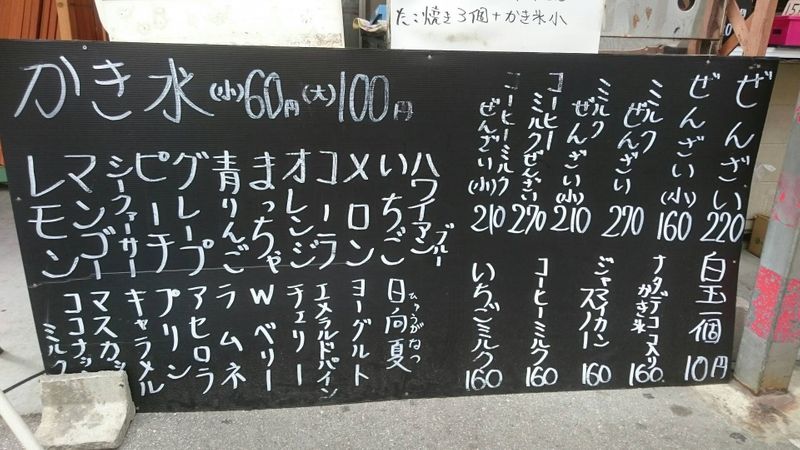 たこ焼き3個+かき氷小
かき氷(小)60円(大)100円
ぜんざい 220
ぜんざい(小) 160
ミルクぜんざい 270
ミルクぜんざい(小) 210
コーヒーミルクぜんざい 270
コーヒーミルクぜんざい(小) 210
白玉一個 10円
ナタデココ入りかき氷 160
ジャマイカンスノー 160
コーヒーミルク 160
いちごミルク 160
ハワイアンブルー
いちご
メロン
コーラ
オレンジ
まっちゃ
青りんご
グレープ
ピーチ
シークァーサー
マンゴー
レモン
日向夏
ひゅうがなつ
ヨーグルト
エメラルドパイン
チェリー
Wベリー
ラムネ
アセロラ
プリン
キャラメル
マスカッ
ココナッ
ミルク